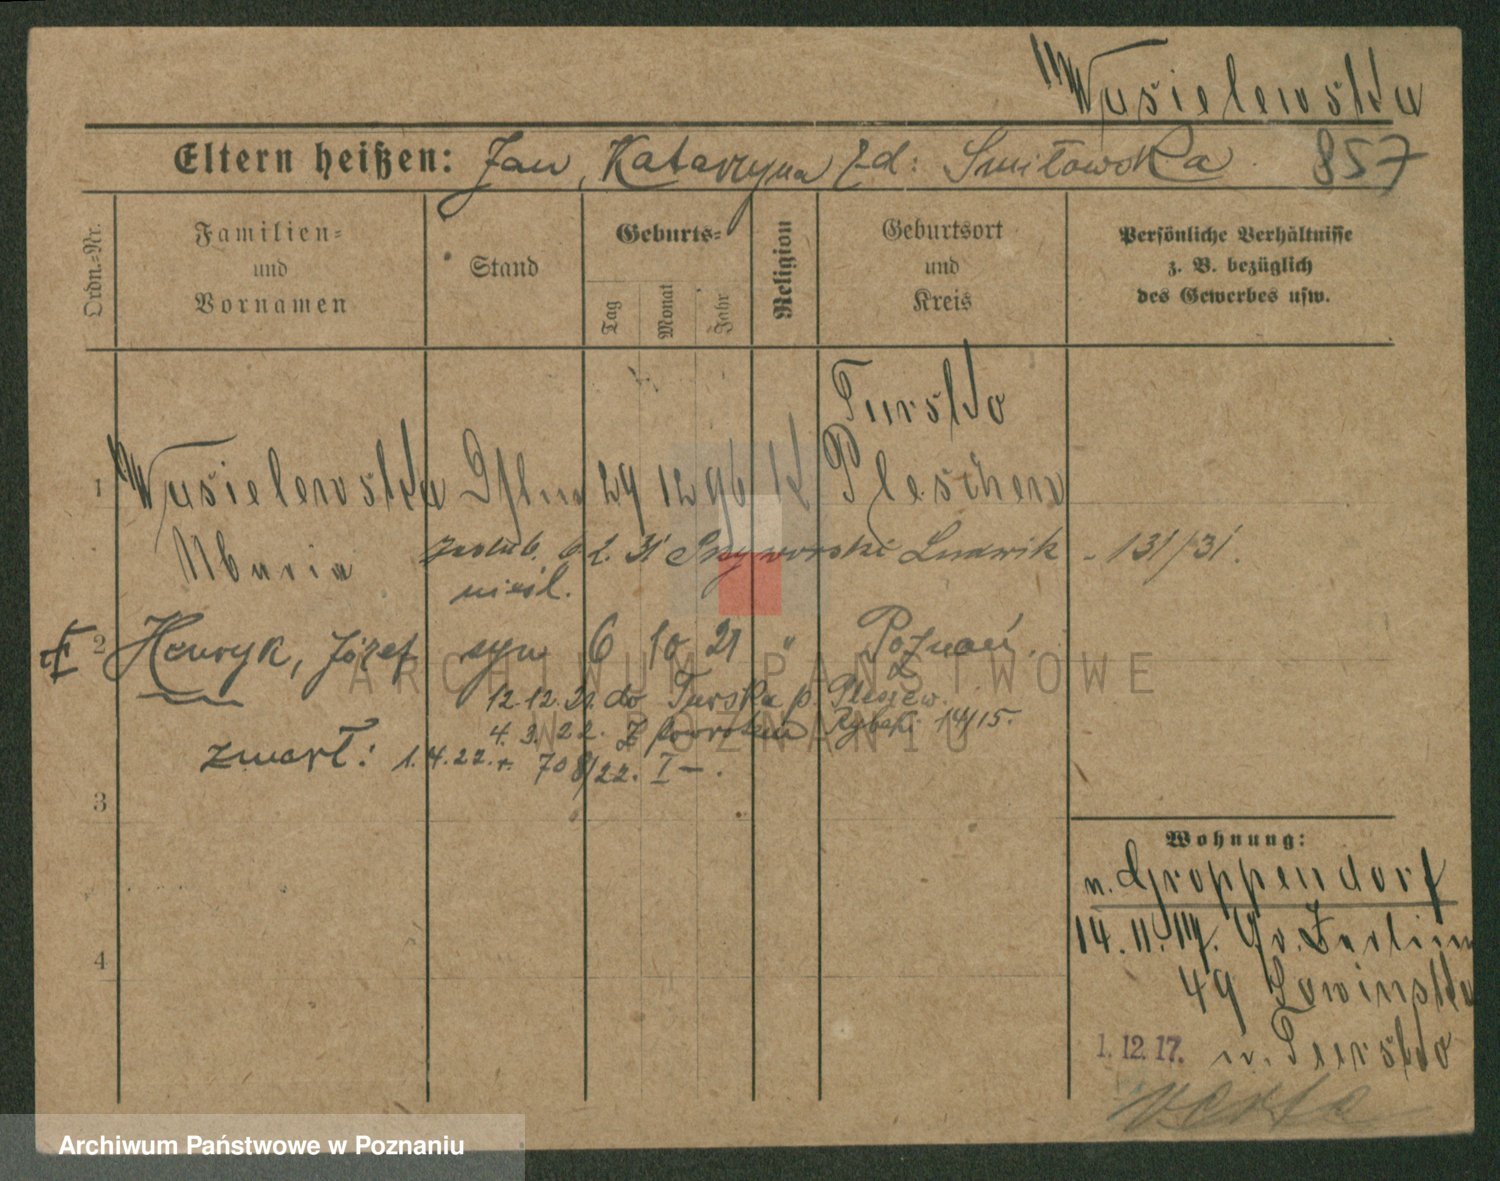 Wasielewska
Eltern heißen: Jan, Katarzyna zd: Smiłowska 857
Ordn.-Nr.
Familien-
und
Vornamen
Stand
Geburts-
Tag
Monat
Jahr
Religion
Geburtsort
und
Kreis
Persönliche Verhältnisse
z. B. bezüglich
des Gewerbes usw.
Tursko
1 Wasielewska 29 12 96 k Pleschen
Maria
zaślub. 6 2. 31 Ludwik - 131/31.
nieśl.
2 Henryk, Józef syn 6 10 21 " Poznań.
12.12.21. do Turska p. Pleszew.
4. 3. 22. z powrotem Rybaki 14/15.
zmarł: 1.4.22. 708/22. I —.
3
4
Wohnung:
n. Groppendorf
14.11.17. Gr. Berliner
49 Lowinska
1. 12. 17. n. Tursko
verte
ARCHIWUM PAŃSTWOWE
W POZNANIU
Archiwum Państwowe w Poznaniu